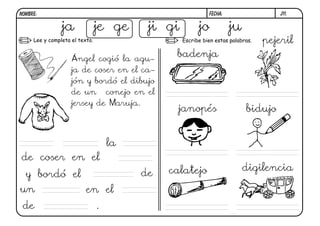 NOMBRE: FECHA:
ja je ge ji gi jo ju
Lee y completa el texto.
Angel cogió la agu-
ja de coser en el ca-
jón y bordó el dibujo
de un conejo en el
jersey de Maruja.
la
de coser en el
y bordó el de
un en el
de .
Escribe bien estas palabras.
pejeril
badenja
janopés bidujo
calatejo digilencia